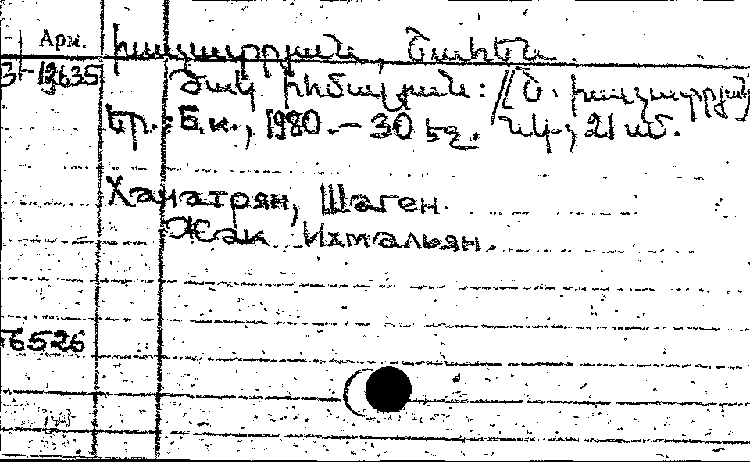 Арм. Խաչատրյան, Շահեն
3-12635 Ժակ Իհմալյան: // Շ. Խաչատրյան
Եր.: Б.и., 1980.— 30 էջ. նկ.; 21 սմ.
Хачатрян, Шаген.
Жак Ихмальян.
6526